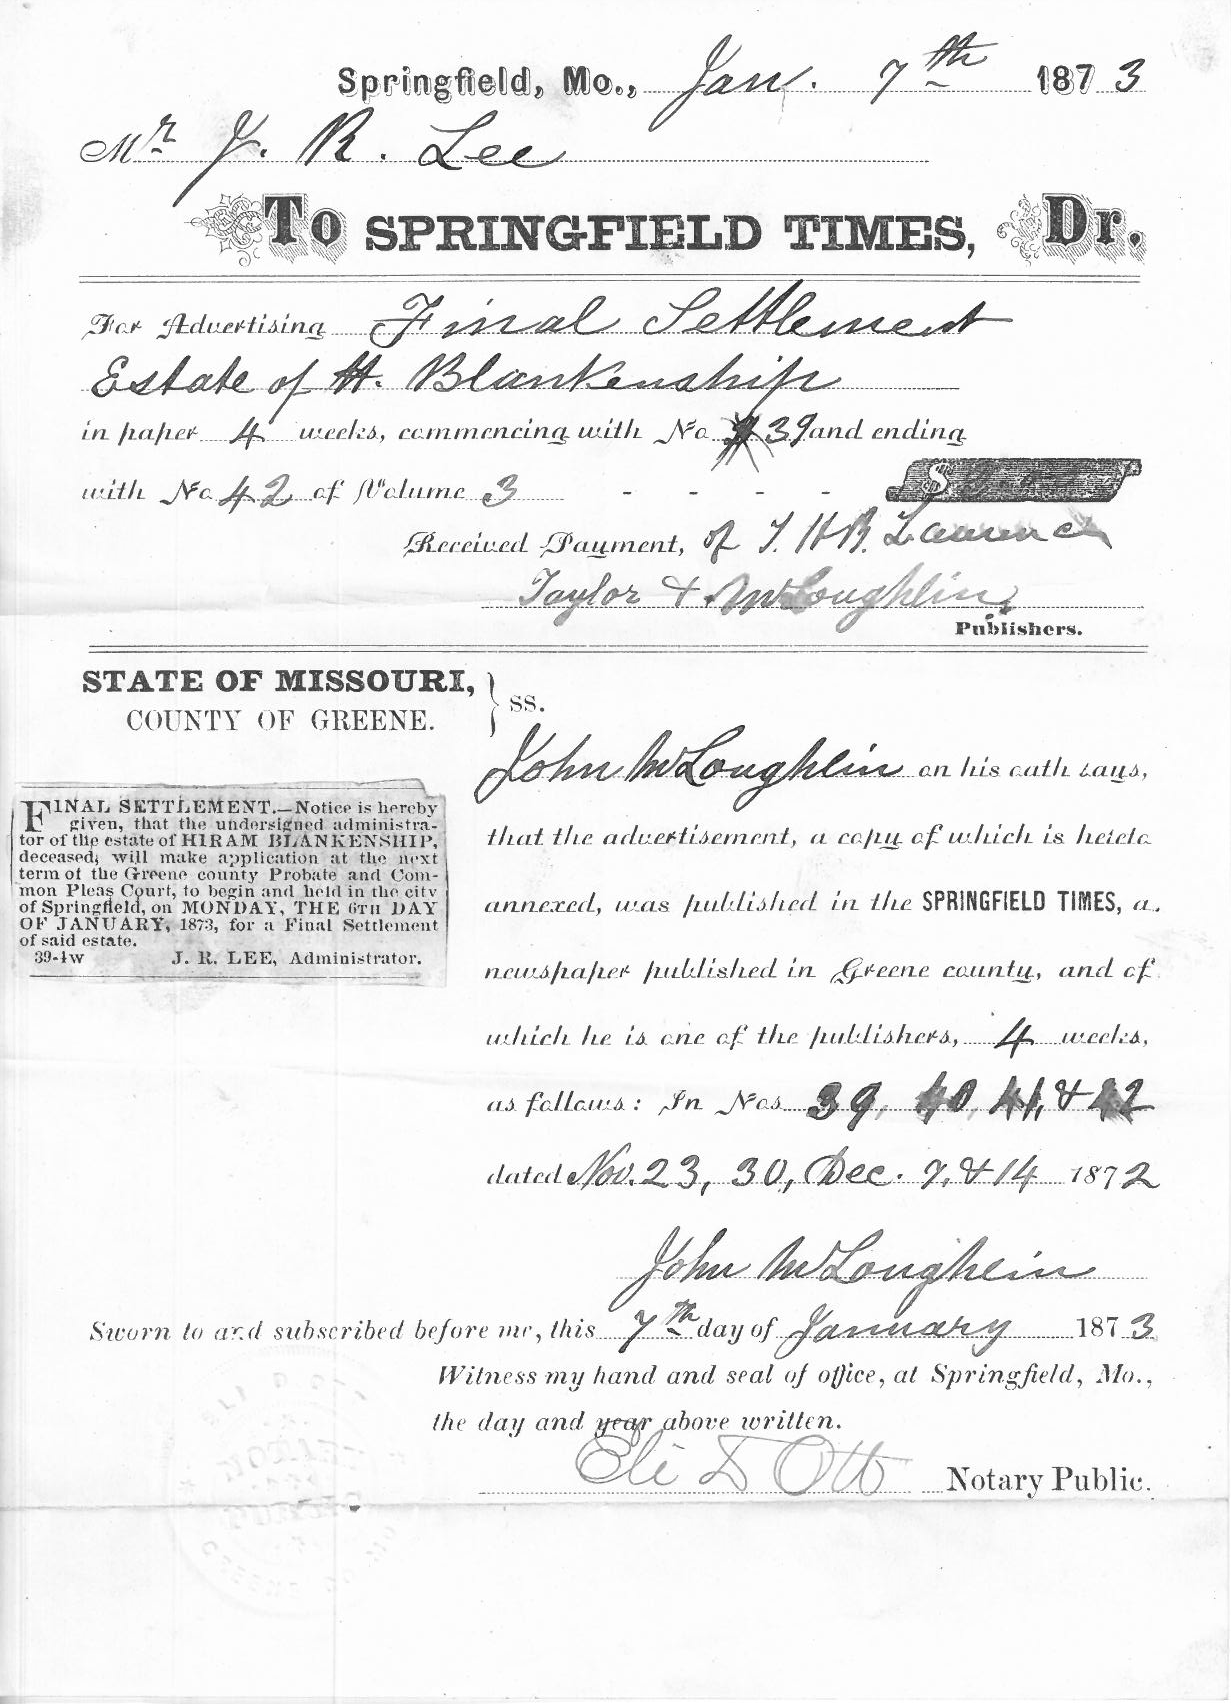 Springfield, Mo., Jan. 7th 1873
Mr J. R. Lee
To SPRINGFIELD TIMES, Dr.
For Advertising Final Settlement
Estate of H. Blankenship
in paper 4 weeks, commencing with No 39 and ending
with No 42 of Volume 3 - - - - $
Received Payment, of J. H. B. Lawrence
Taylor & McLoughlin,
Publishers.
STATE OF MISSOURI,
COUNTY OF GREENE. } ss.
John McLoughlin on his oath says,
that the advertisement, a copy of which is hereto
annexed, was published in the SPRINGFIELD TIMES, a
newspaper published in Greene county, and of
which he is one of the publishers, 4 weeks,
as follows: In Nos 39, 40, 41, & 42
dated Nov. 23, 30, Dec. 7, & 14 1872
John McLoughlin
FINAL SETTLEMENT.—Notice is hereby
given, that the undersigned administra-
tor of the estate of HIRAM BLANKENSHIP,
deceased, will make application at the next
term of the Greene county Probate and Com-
mon Pleas Court, to begin and held in the city
of Springfield, on MONDAY, THE 6TH DAY
OF JANUARY, 1873, for a Final Settlement
of said estate.
39-4w J. R. LEE, Administrator.
Sworn to and subscribed before me, this 7th day of January 1873
Witness my hand and seal of office, at Springfield, Mo.,
the day and year above written.
Eli D Ott Notary Public.